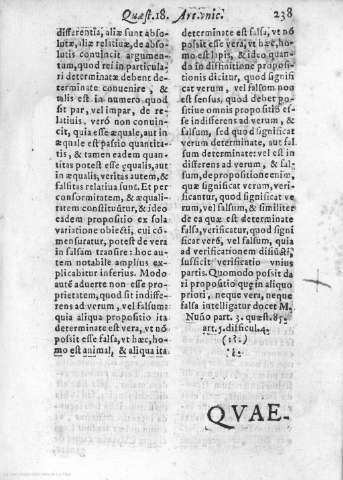 Quæst.18. Art.vnic. 238
differentia, aliæ sunt abso-
lutæ, aliæ relatiuæ, de abso-
lutis conuincit argumen-
tum, quod rei in particula-
ri determinatæ debent de-
terminate conuenire, &
talis est in numero quod
sit par, vel impar, de re-
latiuis. verò non conuin-
cit, quia esse æquale, aut in
æquale est passio quantita-
tis, & tamen eadem quan-
titas potest esse ęqualis, aut
in æqualis, veritas autem, &
falsitas relatiua sunt. Et per
consormitatem, & æquali-
tatem constituũtur, & ideo
eadem propositio ex sola
variatione obiecti, cui cõ-
mensuratur, potest de vera
in falsam transire: hoc au-
tem notabile amplius ex-
plicabitur inferius. Modo
autẽ aduerte non esse pro-
prietatem, quod sit indiffe-
rens ad verum, vel falsum:
quia aliqua propositio ita
determinate est vera, vt nõ
possit esse falsa, vt hæc, ho-
mo est animal, & aliqua ita
determinate est falsa, vt nõ
põssit esse vera, vt hæc, ho-
mo est lapis, & ideo quan-
do in distinitione propositio-
tionis dicitur, quod signifi
cat verum, vel falsum non
est sensus, quod debet po-
sitiue omnis propositio es-
se indifferens ad verum, &
falsum, sed quod significat
verum determinate, aut fal
sum determinate: vel est in
differens ad verum, & fal-
sum, de propositione enim,
quæ significat verum, veri-
ficantur, quod significat ve
rum, vel falsum, & similiter
de ea quæ est determinate
falsa, verificatur, quod signi
ficat verũ, vel falsum, quia
ad verificationem disiũcti,
sufficit verificatio vnius
partis. Quomodo possit da
ri propositio quę in aliquo
prioti, neque vera, neque
falsa intelligatur docet M.
Nuño part. 3. quæst. 85.
art. 5. difficul. 4.
QVAE-